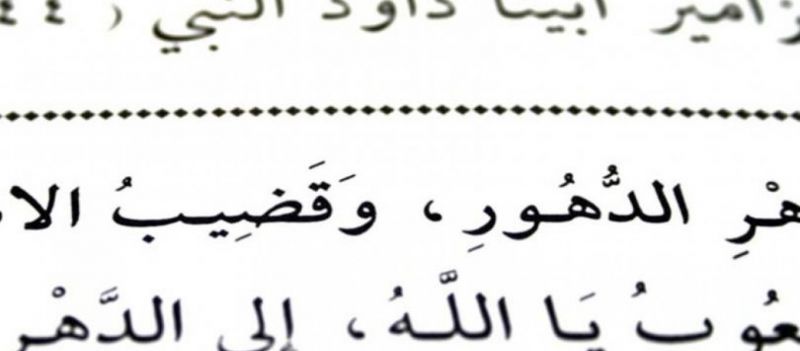 زامير أبينا داود النبي ( ٤٤
هْرِ الدُّهُورِ ، وَقَضِيبُ الا
عُوبُ يَا اللَّهُ ، إلى الدَّهْر